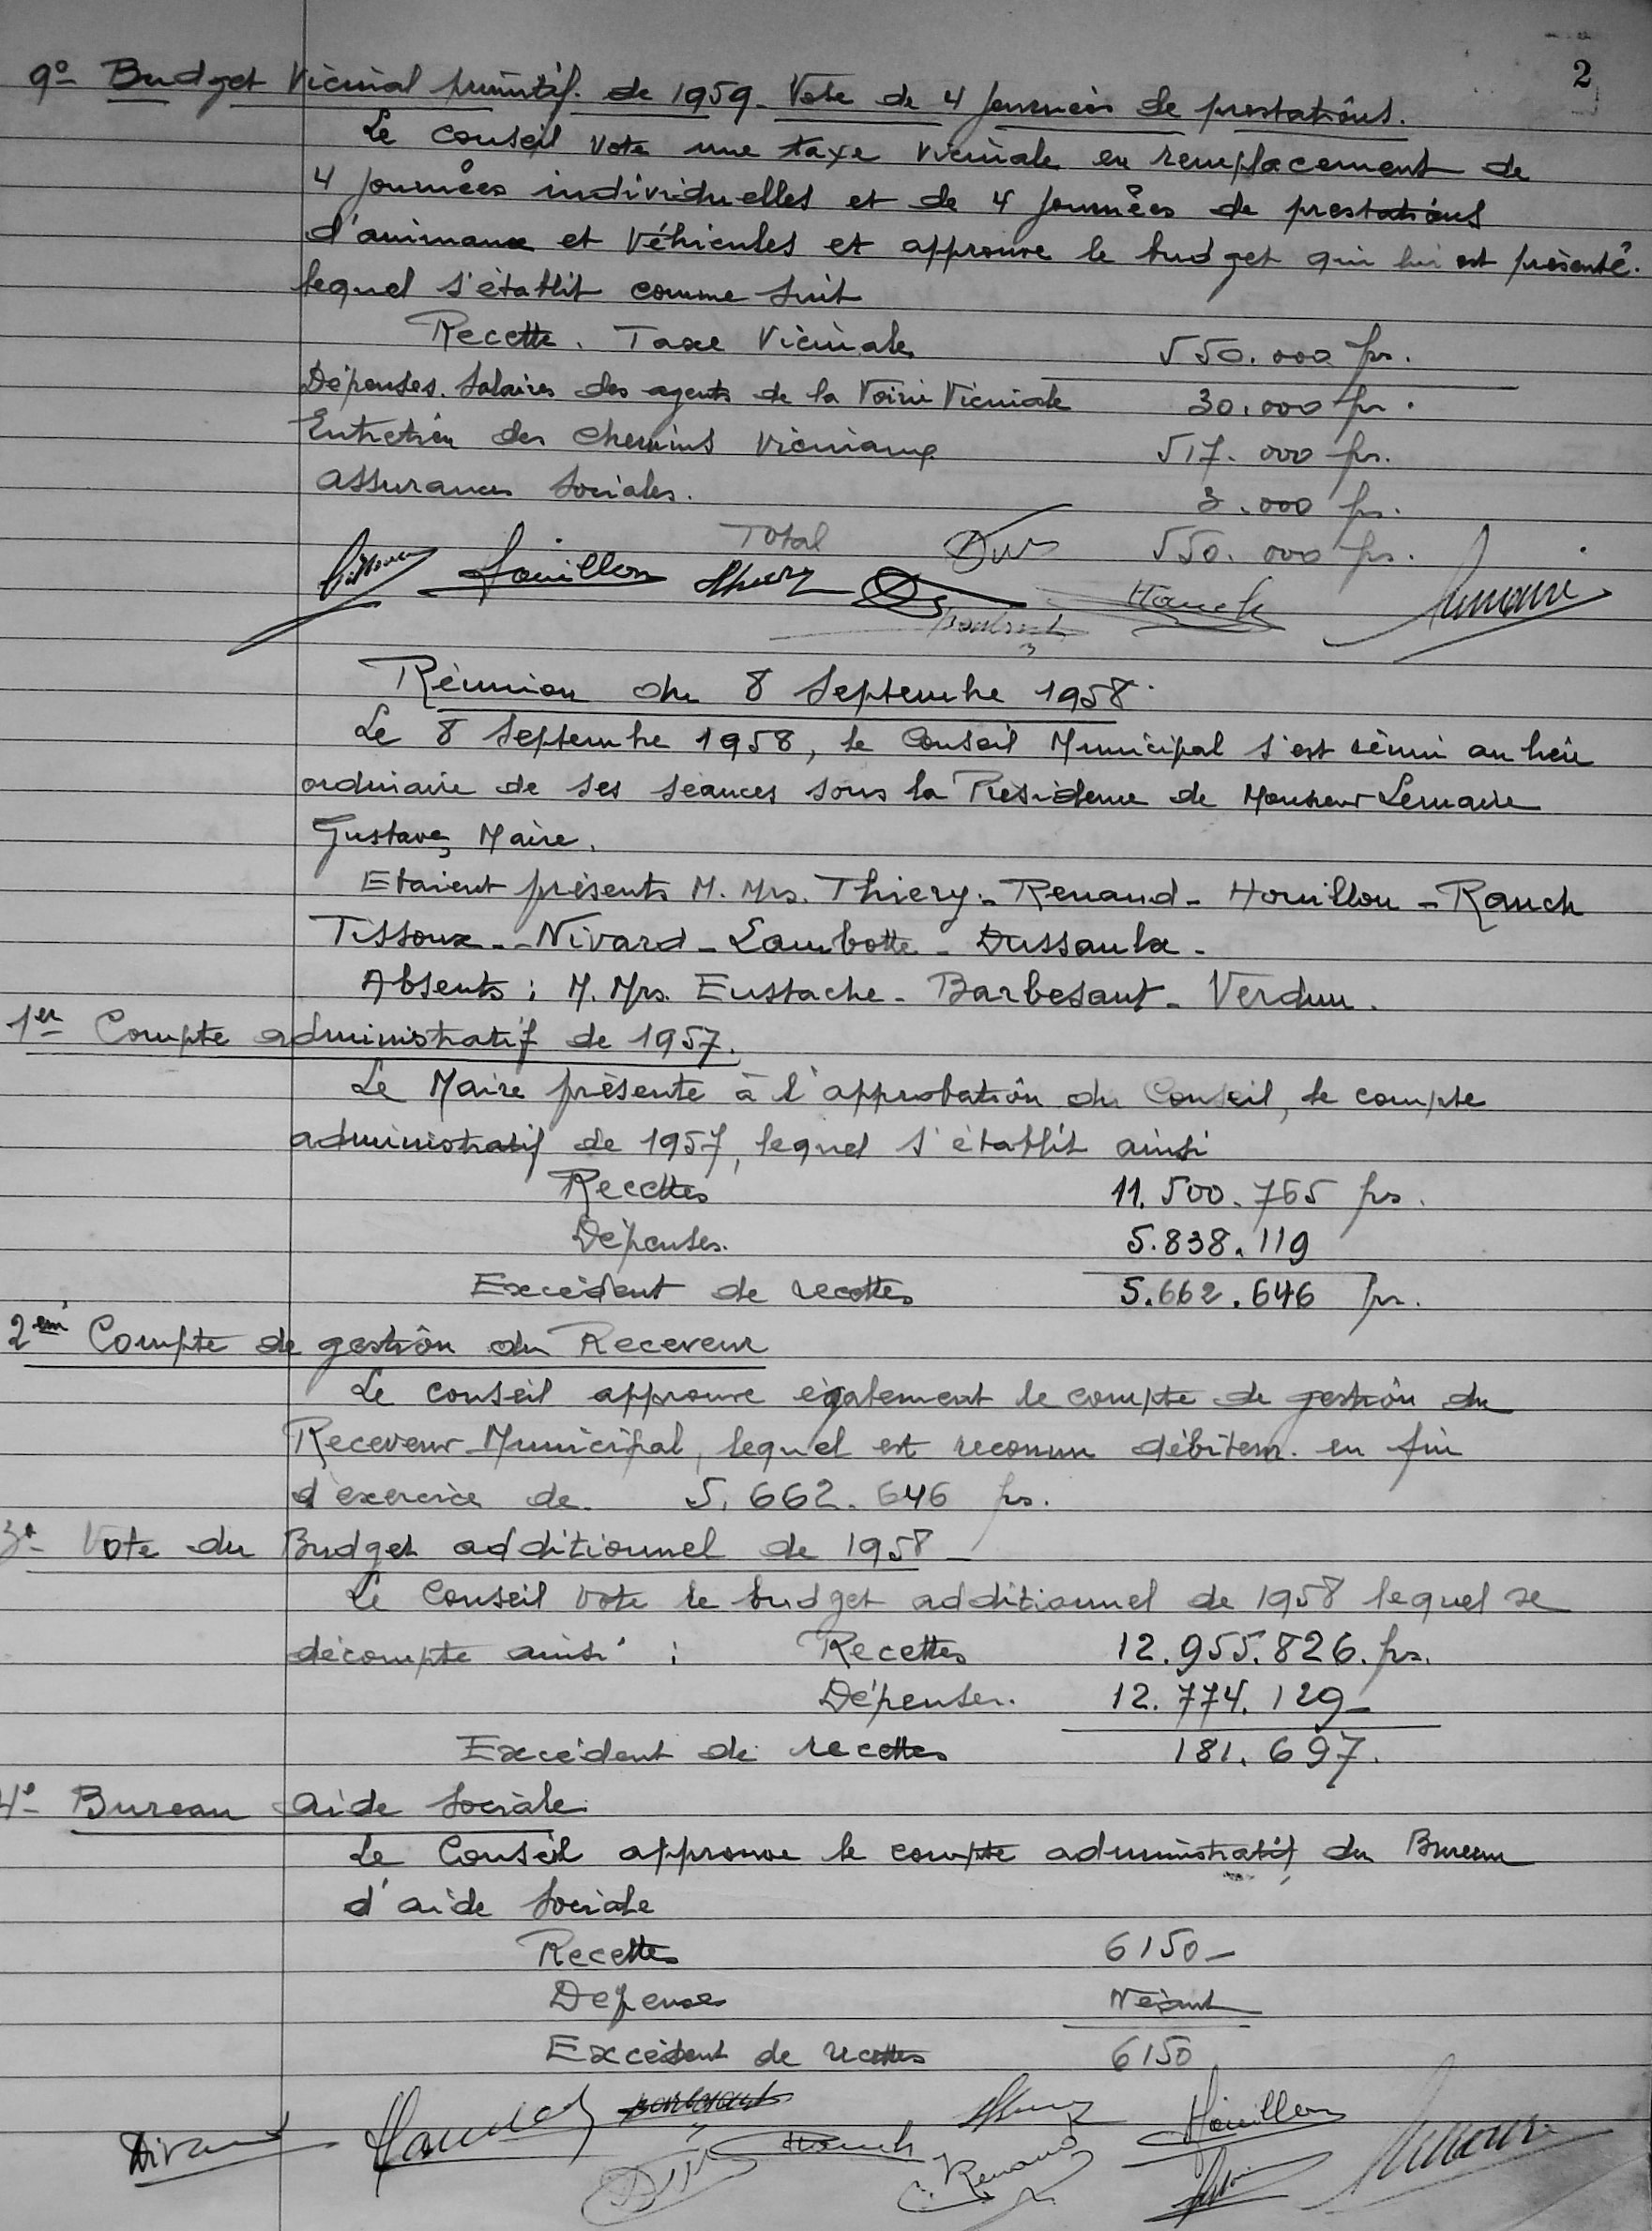 2
9° Budget Vicinal primitif. de 1959 - Vote de 4 journées de prestations.
Le Conseil vote une taxe vicinale en remplacement de
4 journées individuelles et de 4 journées de prestations
d'animaux et Véhicules et approuve le budget qui lui est présenté.
lequel s'établit comme suit
Recette. Taxe Vicinale 550.000 frs.
Dépenses. Salaires des agents de la Voirie Vicinale 30.000 frs.
Entretien des Chemins vicinaux 517.000 frs.
Assurances Sociales. 3.000 frs.
Total 550.000 frs.
Houillon Thiery Rauch Lemaire
Réunion du 8 Septembre 1958.
Le 8 Septembre 1958, le Conseil Municipal s'est réuni au lieu
ordinaire de ses séances sous la Présidence de Monsieur Lemaire
Gustave, Maire.
Etaient présents M. Mrs. Thiery - Renaud - Houillon - Rauch
Tissoux - Nivard - Lambotte - Dussaulx -
Absents : M. Mrs. Eustache - Barbesant - Verdun.
1er Compte administratif de 1957.
Le Maire présente à l'approbation du Conseil, le compte
administratif de 1957, lequel s'établit ainsi
Recettes 11.500.765 frs.
Dépenses. 5.838.119
Excédent de recettes 5.662.646 frs.
2em Compte de gestion du Receveur
Le Conseil approuve également le compte de gestion du
Receveur Municipal, lequel est reconnu débiteur en fin
d'exercice de 5.662.646 frs.
3° Vote du Budget additionnel de 1958 -
Le Conseil vote le budget additionnel de 1958 lequel se
décompte ainsi : Recettes 12.955.826. frs.
Dépenses. 12.774.129 -
Excédent de recettes 181.697.
4° - Bureau Aide Sociale.
Le Conseil approuve le compte administratif du Bureau
d'aide Sociale
Recettes 6150 -
Dépenses Néant
Excédent de recettes 6150
Nivard Barbesant Rauch Thiery Renaud Houillon Lemaire